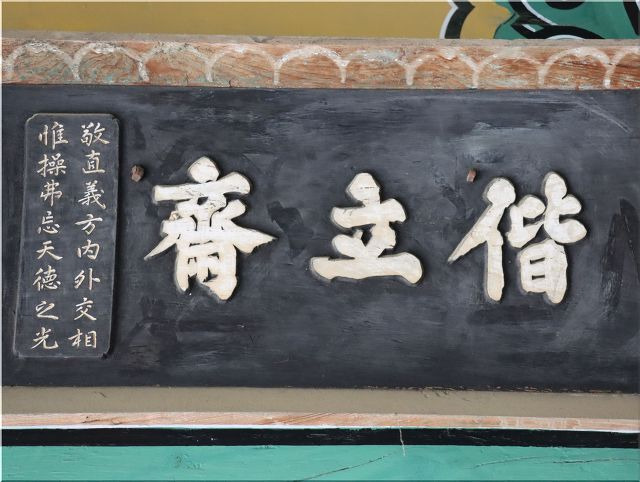 偕立齋
敬直義方内外交相
惟操弗忘天德之光